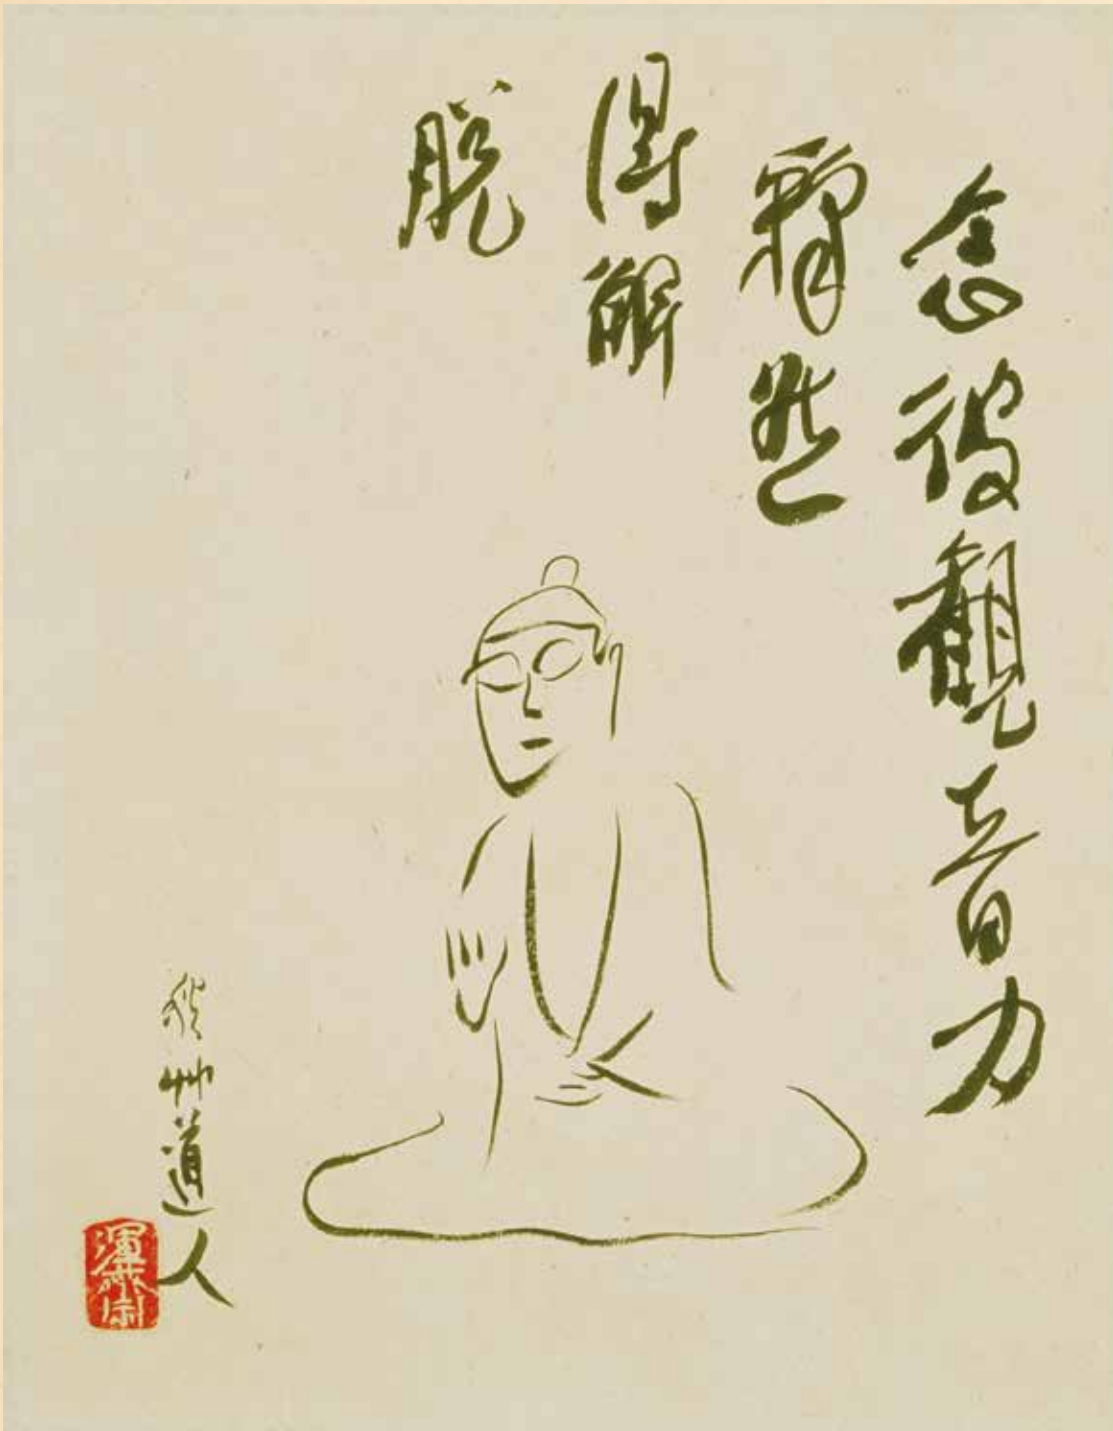 念彼觀音力
釋然
得解
脫
艸道人